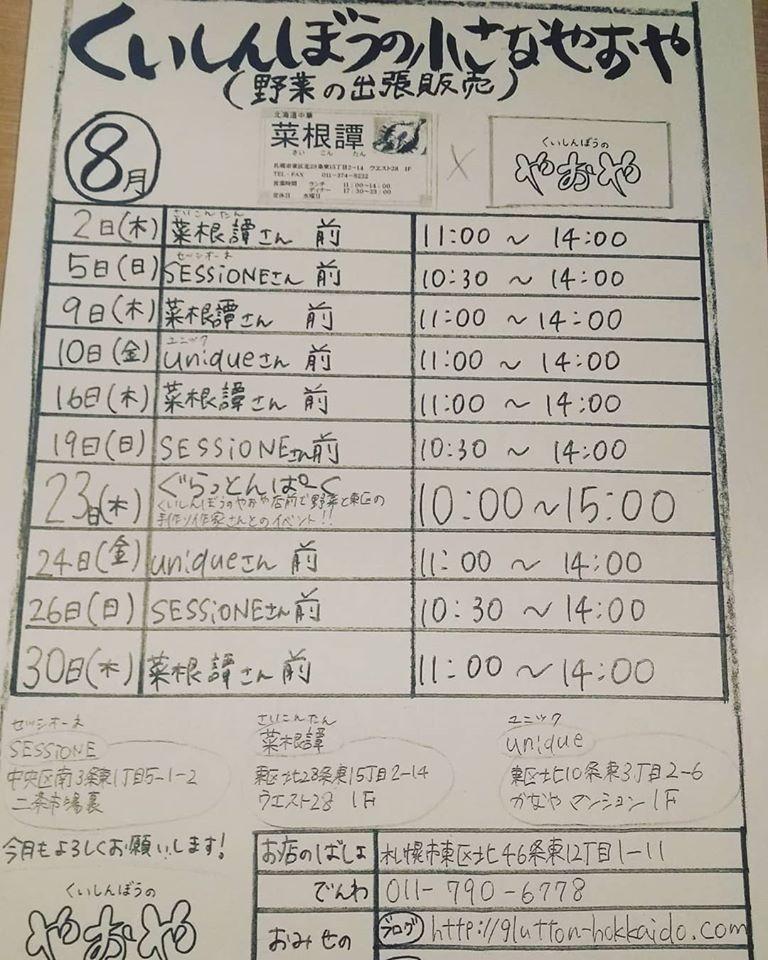 くいしんぼうの小さなやおや
(野菜の出張販売)
8月
北海道中華
菜根譚
さい こん たん
札幌市東区北28条東15丁目2-14 ウエスト28 1F
TEL・FAX 011-374-8232
営業時間 ランチ 11:00~14:00
ディナー 17:30~23:00
定休日 水曜日
×
くいしんぼうの
やおや
さいこんたん
2日(木) 菜根譚さん 前 11:00 ~ 14:00
セッシオーネ
5日(日) SESSiONEさん 前 10:30 ~ 14:00
9日(木) 菜根譚さん 前 11:00 ~ 14:00
ユニック
10日(金) uniqueさん 前 11:00 ~ 14:00
16日(木) 菜根譚さん 前 11:00 ~ 14:00
19日(日) SESSiONEさん前 10:30 ~ 14:00
23日(木) ぐらっとんぱーく 10:00~15:00
くいしんぼうのやおや店前で野菜と東区の
手作り作家さんとのイベント!!
24日(金) uniqueさん 前 11:00 ~ 14:00
26日(日) SESSiONEさん前 10:30 ~ 14:00
30日(木) 菜根譚さん前 11:00 ~ 14:00
セッシオーネ
SESSiONE
中央区南3条東1丁目5-1-2
二条市場裏
さいこんたん
菜根譚
東区北28条東15丁目2-14
ウエスト28 1F
ユニック
unique
東区北10条東3丁目2-6
かなやマンション1F
今月もよろしくお願いします!
くいしんぼうの
やおや
お店のばしょ 札幌市東区北46条東12丁目1-11
でんわ 011-790-6778
おみせの ブログ http://glutton-hokkaido.com